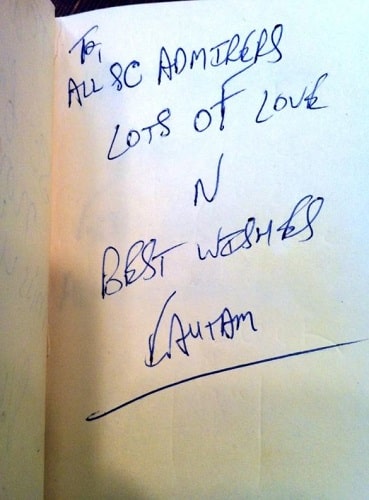 To,
ALL SC ADMIRERS
LOTS OF LOVE
N
BEST WISHES
GAUTAM